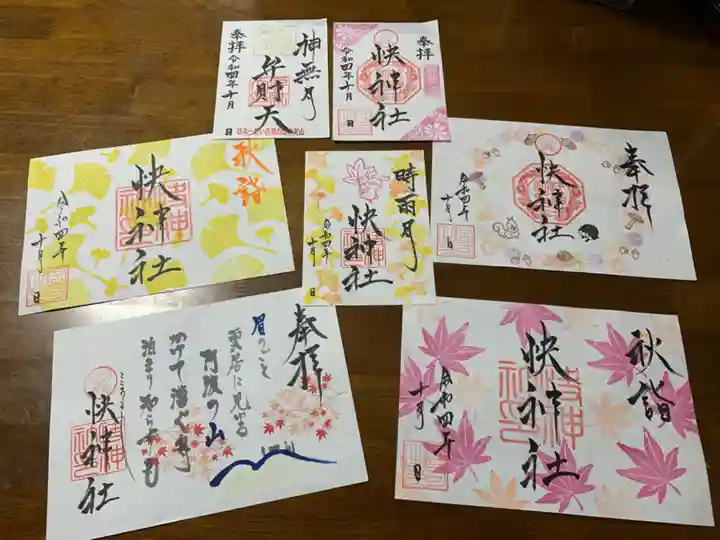 奉拝
令和四年十月
日
弁財天
神無月
奉拝
令和四年十月
日
快神社
秋詣
快神社
令和四年
十月
日
時雨月
快神社
令和四年
十月
日
奉拝
快神社
令和四年
十月
日
奉拝
眉のごと
雲居に見ゆる
阿波の山
かけて漕ぐ舟
泊まり知らずも
快神社
秋詣
快神社
令和四年
十月
日